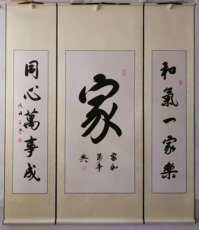 和氣一家樂
家
家和
萬事
興
同心萬事成